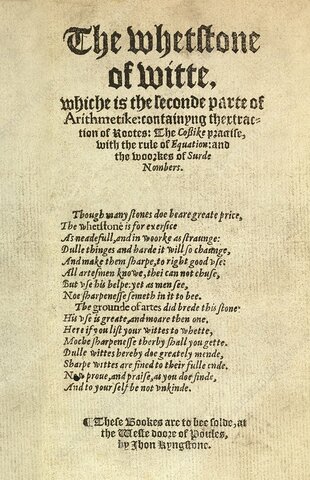 The whetstone
of witte,
whiche is the seconde parte of
Arithmetike: containyng thextrac-
tion of Rootes: The Coßike practise,
with the rule of Equation: and
the woorkes of Surde
Nombers.
Though many stones doe beare greate price,
The whetstone is for exersice
As neadefull, and in woorke as straunge:
Dulle thinges and harde it will so chaunge,
And make them sharpe, to right good vse:
All artesmen knowe, thei can not chuse,
But vse his helpe: yet as men see,
Noe sharpenesse semeth in it to bee.
The grounde of artes did brede this stone:
His vse is greate, and moare then one.
Here if you list your wittes to whette,
Moche sharpenesse therby shall you gette.
Dulle wittes hereby doe greately mende,
Sharpe wittes are fined to their fulle ende.
Now proue, and praise, as you doe finde,
And to your self be not vnkinde.
¶These Bookes are to bee solde, at
the Weste doore of Poules,
by Jhon Kyngstone.